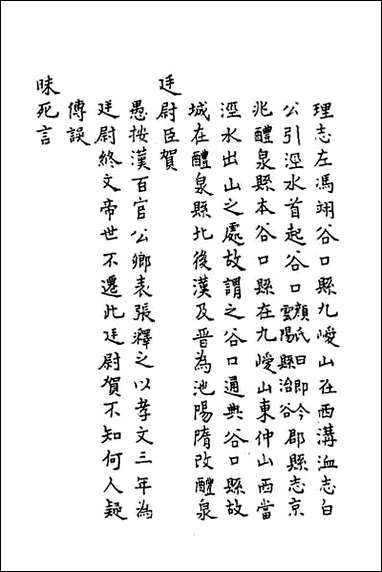 理志左馮翊谷口縣九嵕山在西溝洫志白
公引涇水首起谷口顔氏曰即今雲陽縣治谷郡縣志京
兆醴泉縣本谷口縣在九嵕山東仲山西當
涇水出山之處故謂之谷口通典谷口縣故
城在醴泉縣北後漢及晉為池陽隋改醴泉
廷尉臣賀
愚按漢百官公卿表張釋之以孝文三年為
廷尉終文帝世不遷此廷尉賀不知何人疑
傳誤
昧死言